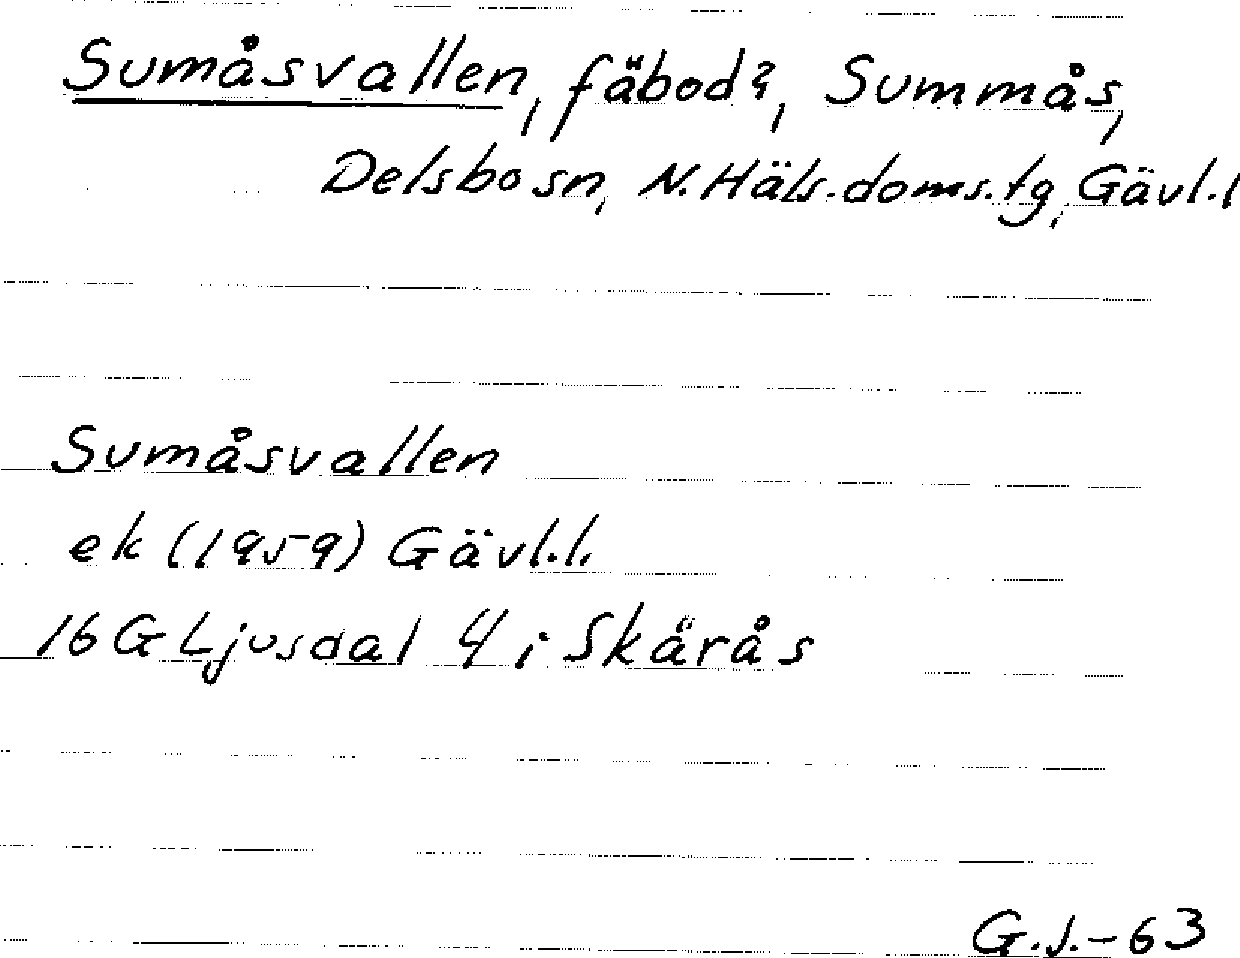 Sumåsvallen, fäbod?, Summås,
Delsbo sn, N. Häls. doms. tg, Gävl. l
Sumåsvallen
ek (1959) Gävl. l.
16 G Ljusdal 4 i Skärås
G.J.-63